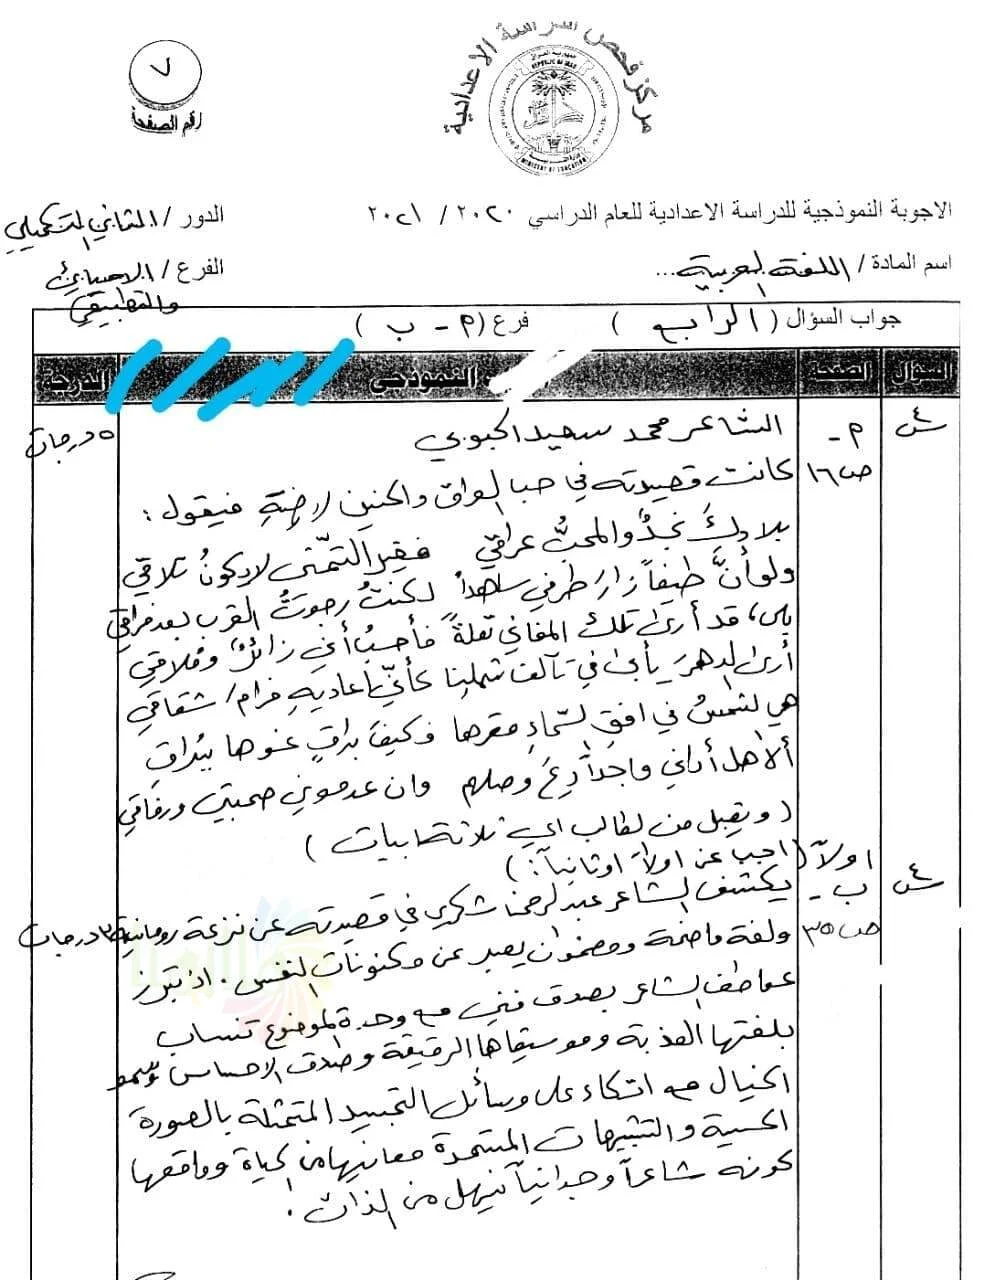 مركز فحص الدراسة الاعدادية
REPUBLIC OF IRAQ
MINISTRY OF EDUCATION
٧
رقم الصفحة
الاجوبة النموذجية للدراسة الاعدادية للعام الدراسي ٢٠٢٠ / ٢٠٢١
الدور / الثاني التكميلي
اسم المادة / اللغة العربية...
الفرع / الاحيائي والتطبيقي
جواب السؤال ( الرابع ) فرع (م - ب )
السؤال الصفحة النموذجي الدرجة
س٤ م- الشاعر محمد سعيد الحبوبي ٥ درجات
ص١٦ كانت قصيدته في حب العراق والحنين لارضهِ فيقول :
بلادكَ نجدٌ والمحبُّ عراقي فغير التمّني لا يكونُ تلاقي
ولو أنَّ طيفاً زارَ طرفي ساهداً لكنتُ رجوتُ القرب بعد فراقي
بلى، قد أرى تلك المغاني تعلةً فأحسبُ أني زائلٌ وملاقي
أرى الدهرَ يأبى في تآلف شملنا كأني أعاديهِ فرام شقاقي
هي الشمسُ في افقِ السّماءِ مقرها وكيفَ براقٍ نحوها ببُراقِ
ألا هل أراني واجداً ريحَ وصلهم وان عدموني صحبتي ورفاقي
( وتقبل من الطالب اي ثلاثة ابيات )
اولاً (اجب عن اولاً او ثانياً :)
س٤ ب- يكشف الشاعر عبد الرحمن شكري في قصيدته عن نزعة رومانية ٣ درجات
ص٣٥ ولغة واضحة ومضمون يعبر عن مكنونات النفس . اذ تبرز
عواطف الشاعر بصدق فني مع وحدة الموضوع تنساب
بلغتها العذبة وموسيقاها الرقيقة وصدق الاحساس وسمو
الخيال مع اتكاء على وسائل التجسيد المتمثلة بالصورة
الحسية والتشبيهات المستمدة معانيها من الحياة وواقعها
كونه شاعراً وجدانياً ينهل من الذات .